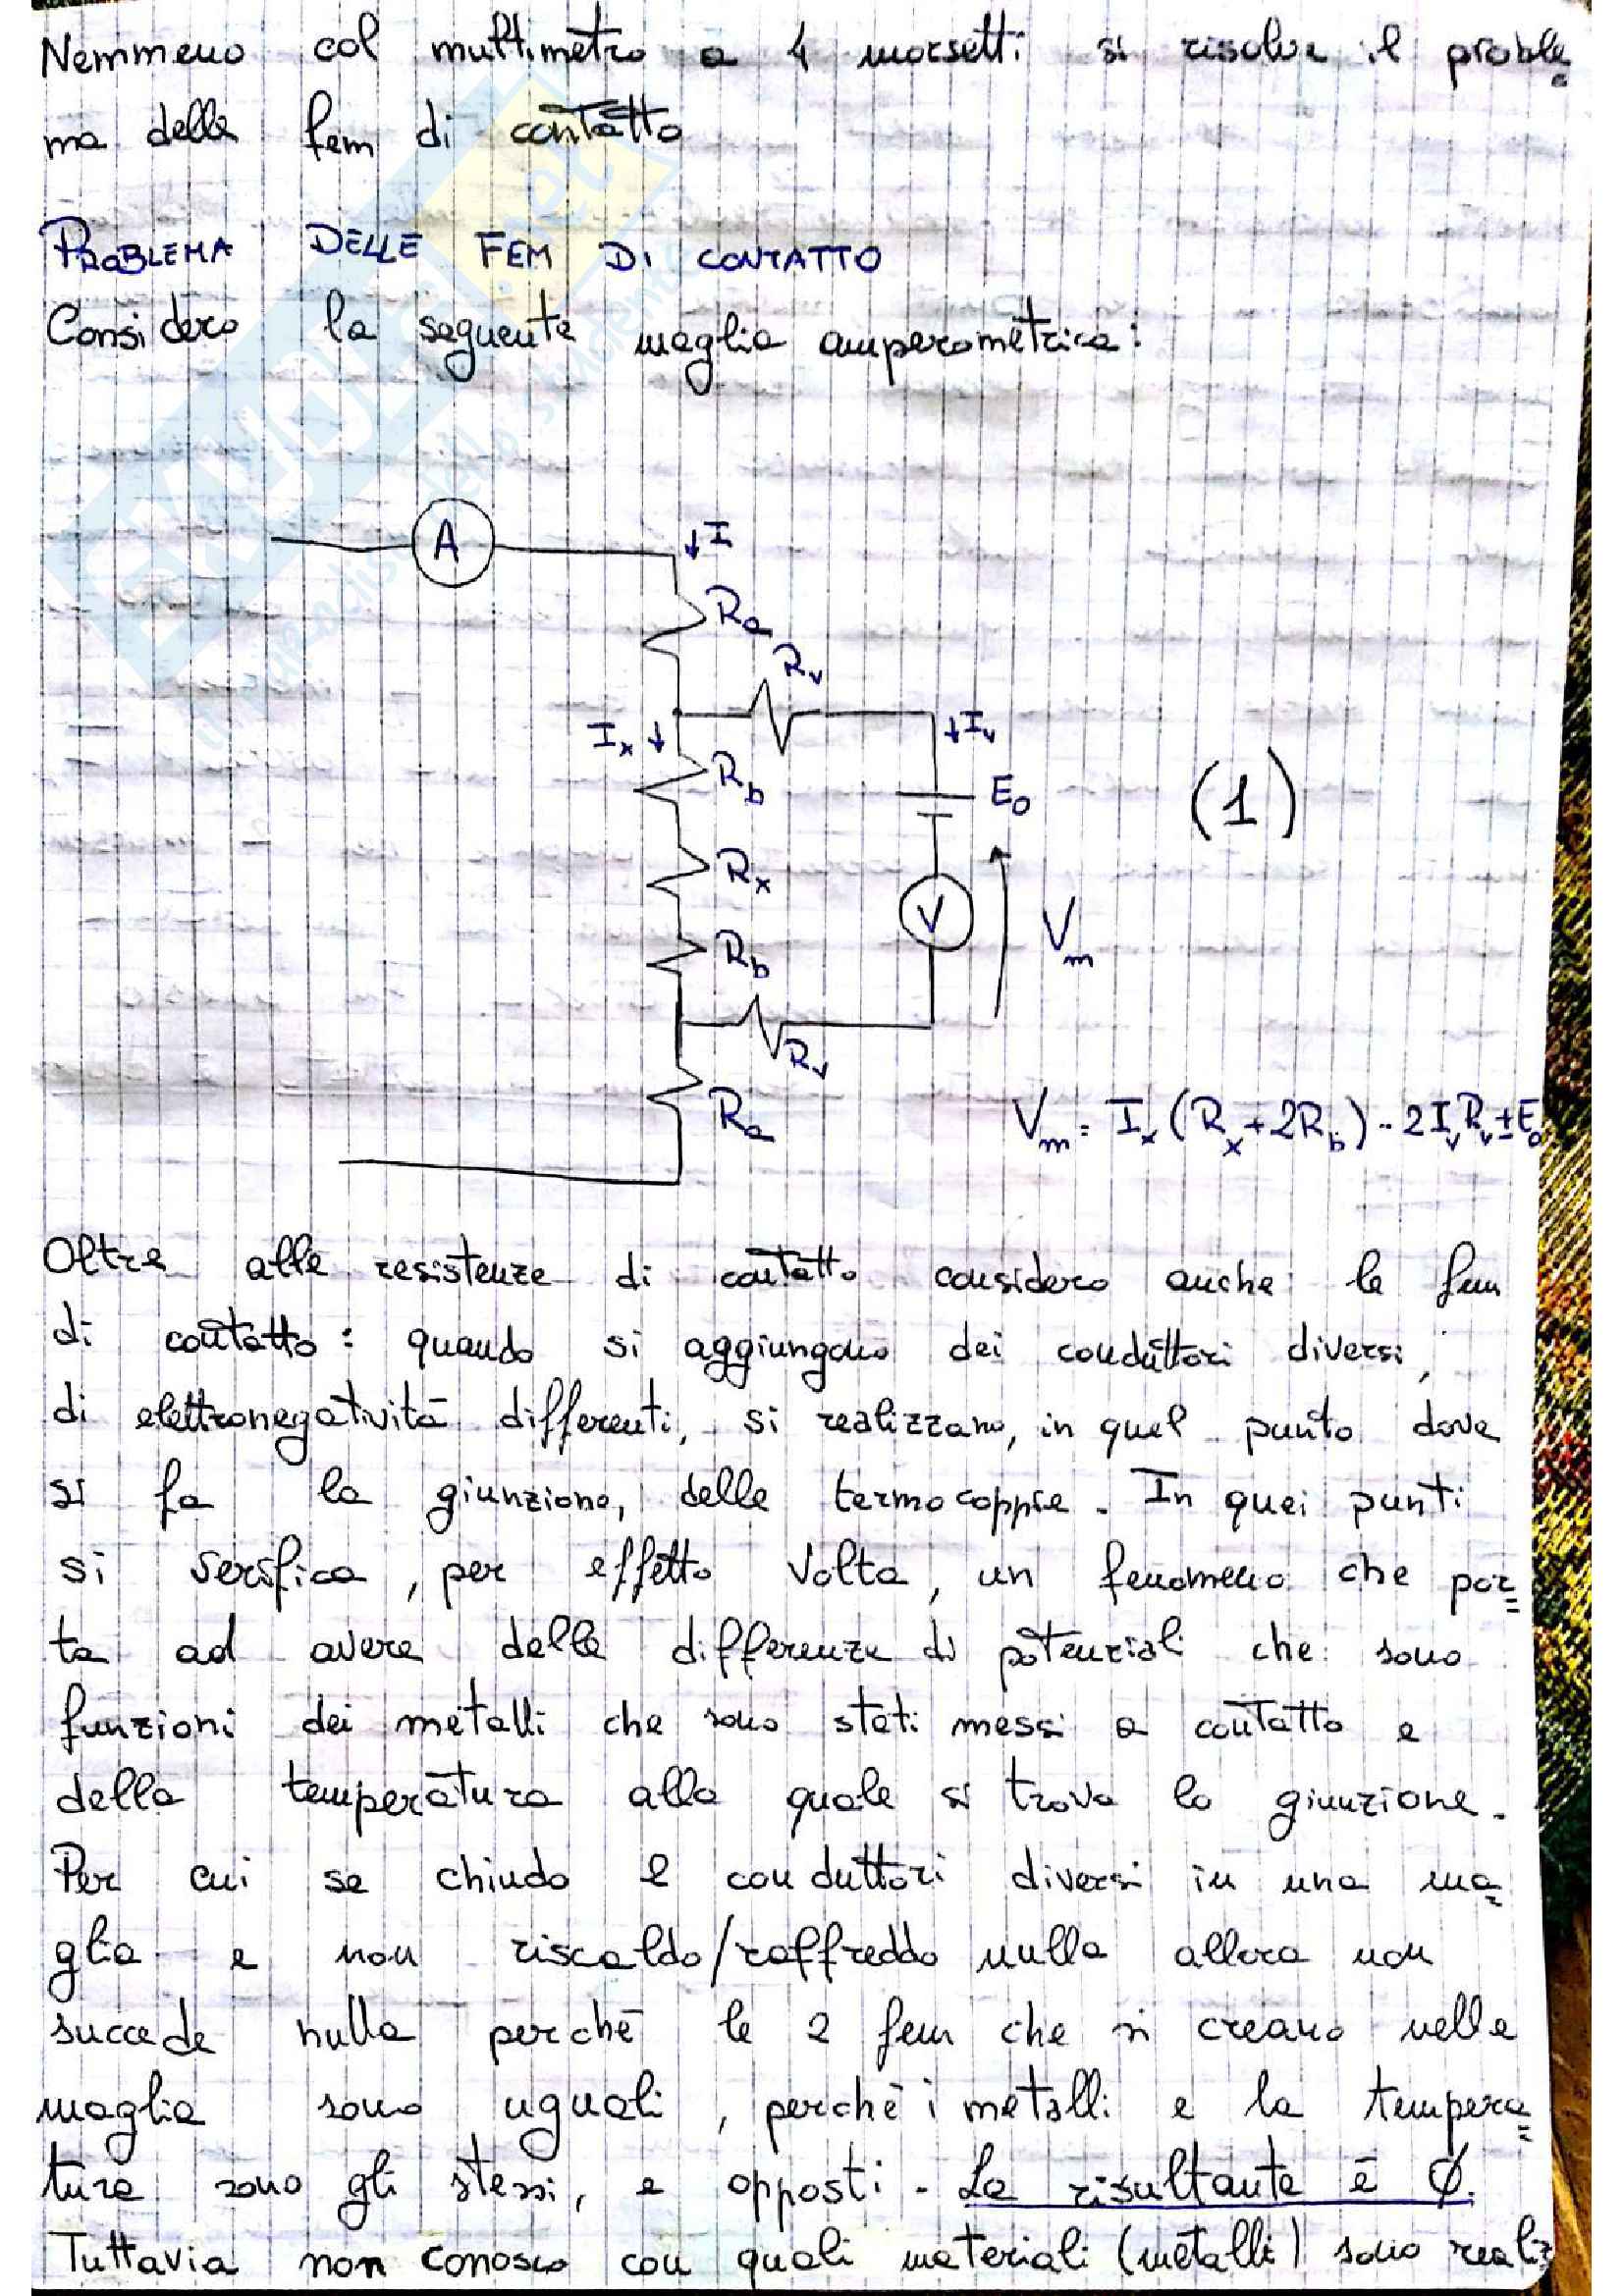 Nemmeno col multimetro a 4 morsetti si risolve il proble
ma delle fem di contatto
PROBLEMA DELLE FEM DI CONTATTO
Considero la seguente maglia amperometrica:
A
↓I
Ra
Rv
Ix↓
↓Iv
Rb
E0
(1)
Rx
V
Vm
Rb
Rv
Ra
Vm = Ix(Rx+2Rb)-2IvRv±E0
Oltre alle resistenze di contatto considero anche le fem
di contatto: quando si aggiungono dei conduttori diversi,
di elettronegatività differenti, si realizzano, in quel punto dove
si fa la giunzione, delle termocoppie. In quei punti
si verifica, per effetto Volta, un fenomeno che por
ta ad avere delle differenze di potenziali che sono
funzioni dei metalli che sono stati messi a contatto e
della temperatura alla quale si trova la giunzione.
Per cui se chiudo 2 conduttori diversi in una ma
glia e non riscaldo/raffreddo nulla allora non
succede nulla perché le 2 fem che si creano nella
maglia sono uguali, perché i metalli e la tempera
tura sono gli stessi, e opposti. La risultante è Ø.
Tuttavia non conosco con quali materiali (metalli) sono realiz